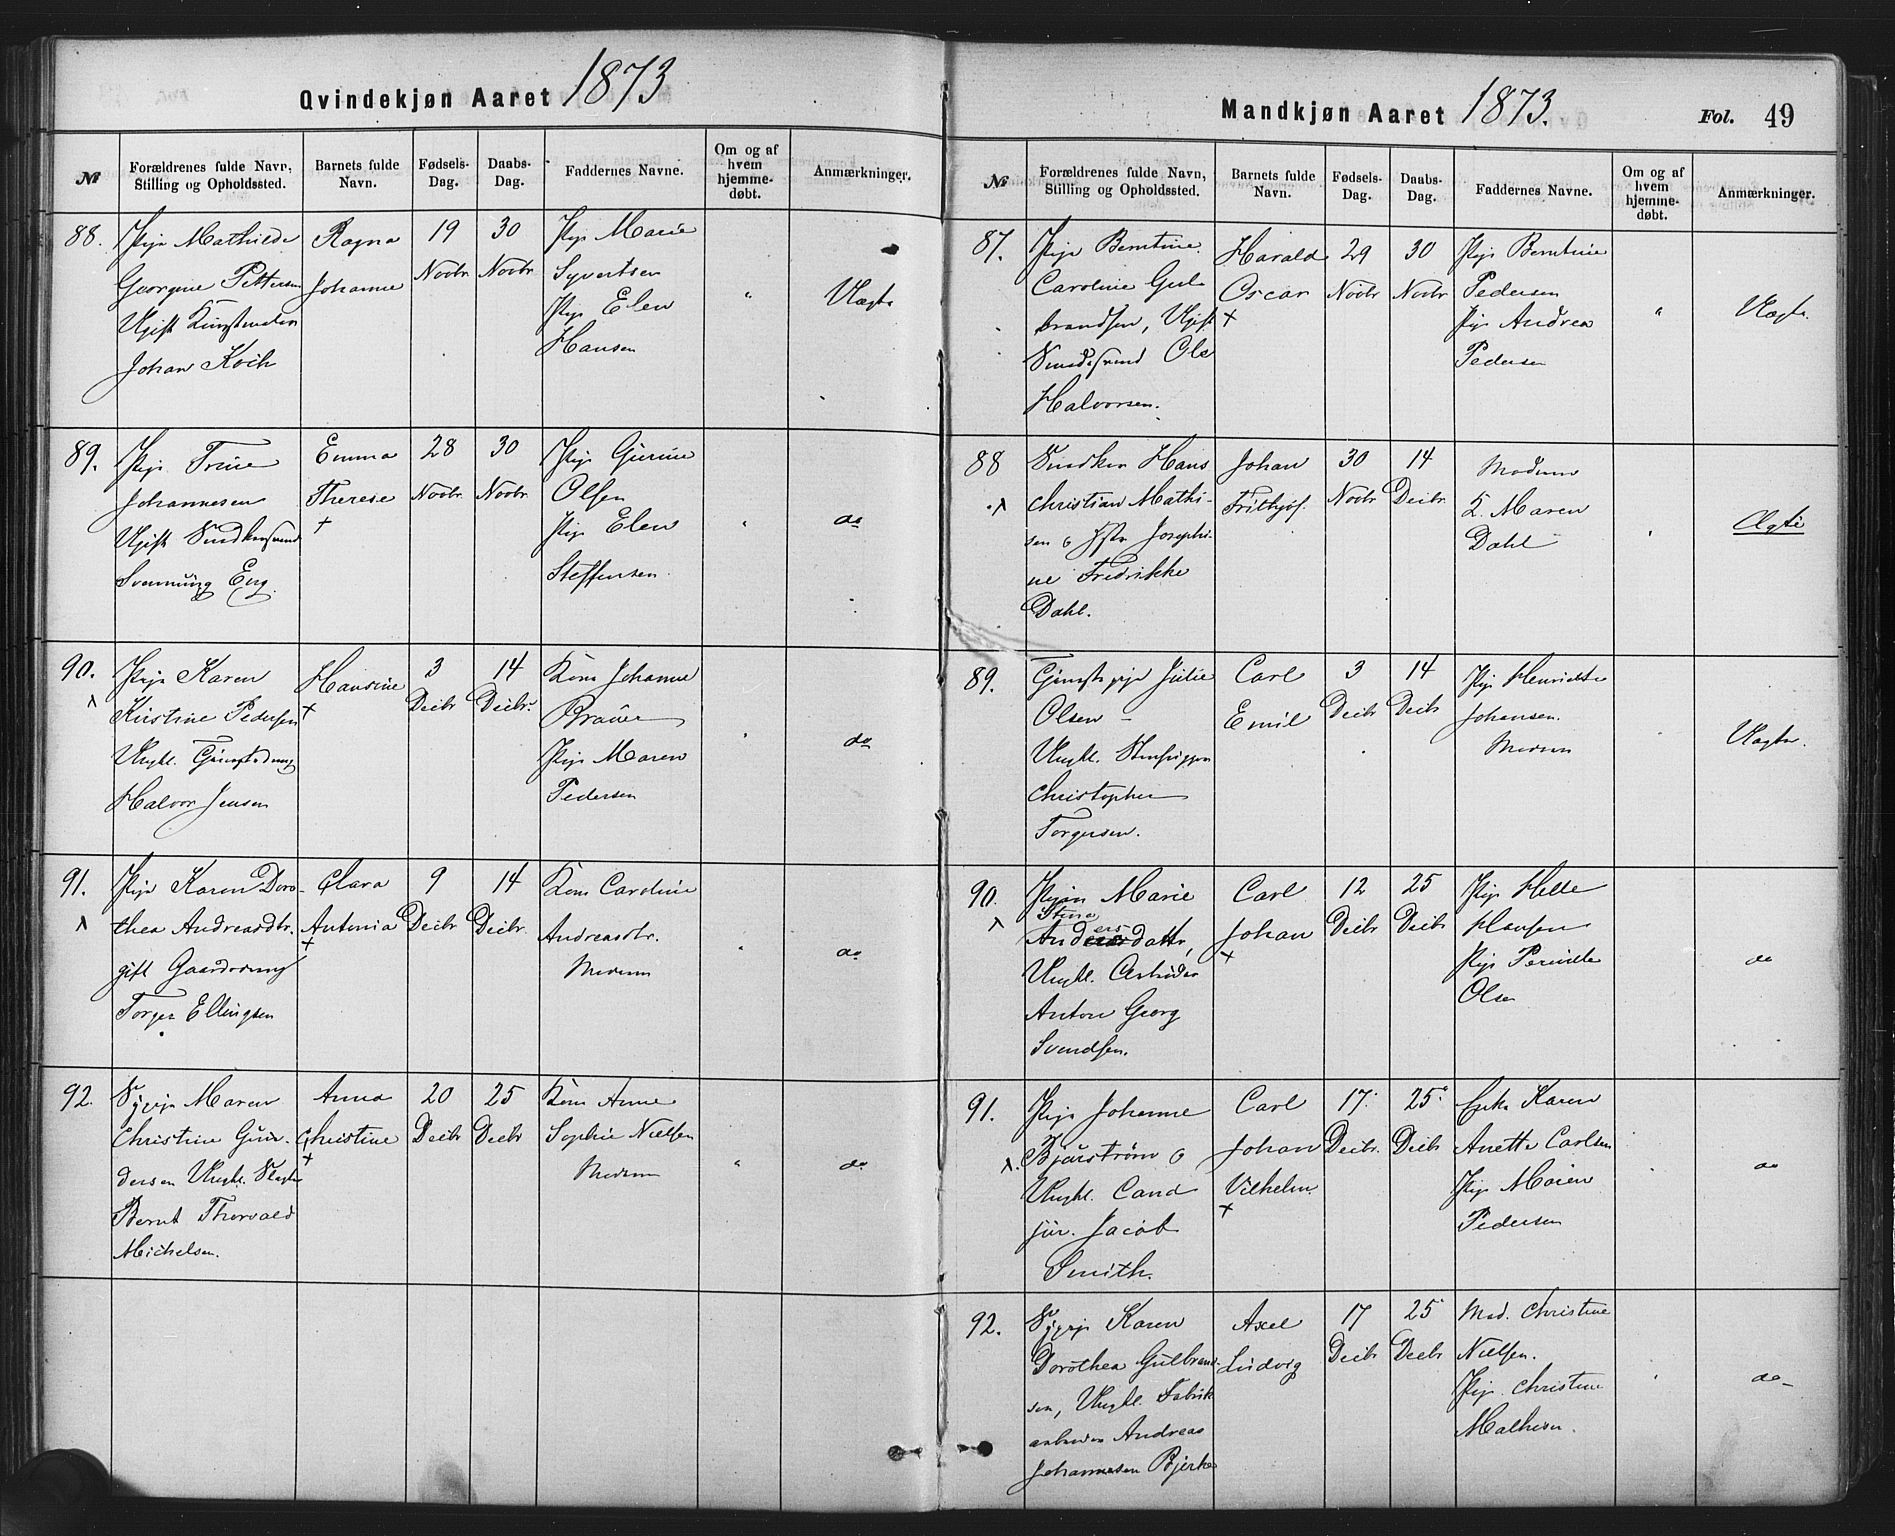 Qvindekjøn Aaret 1873
№
Forældrenes fulde Navn, Stilling og Opholdssted.
Barnets fulde Navn.
Fødsels-Dag.
Daabs-Dag.
Faddernes Navne.
Om og af hvem hjemme-døbt.
Anmærkninger.
88.
Pige Mathilde
Georgine Pettersen
Ugift
Johan Koch
Ragna
Johanne
19
Novbr
30
Novbr
Pige Marie
Syvertsen
Pige Elen
Hansen
"
Uægte
89.
Pige Trine
Johannesen
Ugift
Svennung Eng.
Emma
Therese
+
28
Novbr
30
Novbr.
Pige Gurine
Olsen
Pige Elen
Steffensen
"
do
90.
Pige Karen
Kirstine Pedersen
Ungkl.
Halvor Jensen
Hansine
+
3
Decbr
14
Decbr.
Kone Johanne
Pige Maren
Pedersen
"
do
91.
Pige Karen Doro-
thea Andreasdtr.
gift Gaardsdreng
Torger Ellingsen
Clara
Antonia
+
9
Decbr
14
Decbr.
Kone Caroline
Andreasdtr.
Moderen
"
do
92.
Sypige Maren
Christine Gun-
dersen Ungkl.
Bernt Thorvald
Michelsen.
Anna
Christine
+
20
Decbr
25
Decbr
Kone Anne
Sophie Nielsen
Moderen
"
do
Mandkjøn Aaret 1873.
Fol. 49
№
Forældrenes fulde Navn, Stilling og Opholdssted.
Barnets fulde Navn.
Fødsels-Dag.
Daabs-Dag.
Faddernes Navne.
Om og af hvem hjemme-døbt.
Anmærkninger.
87.
Pige Berntine
Caroline Gul-
brandsen, Ugift
Smedesvend Ole
Halvorsen.
Harald
Oscar
+
29
Novbr
30
Novbr
Pige Berntine
Pedersen
Pige Andrea
Pedersen
"
Uægte.
88
Snedker Hans
Christian Mathi-
sen o Hstr Josephi-
ne Fredrikke
Dahl.
Johan
Frithjof.
30
Novbr
14
Decbr
Moderen
2. Maren
Dahl
"
Ægte
89.
Julie
Olsen
Ungkl.
Christopher
Torgersen.
Carl
Emil
3
Decbr
14
Decbr
Pige Henriette
Johansen.
Moderen
Uægte.
90.
Pigen Marie
Stina
Andersdattr,
Ungkl. Arbeider
Anton Georg
Svendsen.
Carl
Johan
+
12
Decbr
25
Decbr
Pige Helle
Hansen
Pige Pernille
Olsen
do
91.
Pige Johanne
Bjurstrøm o
Ungkl. Cand
jur. Jacob
Smith.
Carl
Johan
Vilhelm.
+
17.
Decbr.
25.
Decbr
Enke Karen
Anette Carlsen
Pige Maren
Pedersen
do
92.
Sypige Karen
Dorothea Gulbrand-
sen, Ungkl. Fabrik
arbeider Andreas
Johannesen Bjerke
Axel
Ludvig
17
Decbr
25
Decbr
Mad. Christine
Nielsen.
Pige Christine
Mathisen.
do